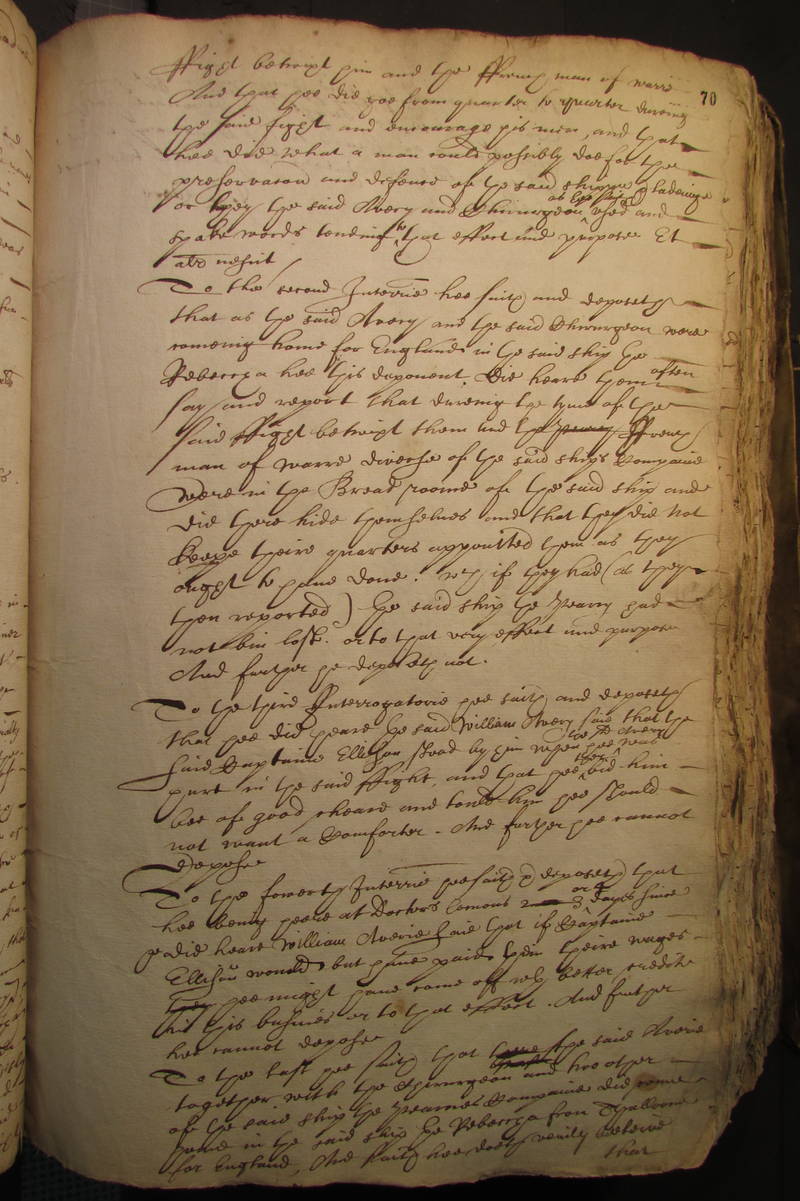 70
ffight betwixt him and the ffrench man of warre
And that hee did goe from quarter to quarter during
the said fight and encourage his men, and that
hee did what a man could possibly doe for the
preservacon and defence of the said shipp and ladeinge
or they the said Avery and Chirurgeon used and
as they said
spake words tending to that effect and purpose Et
alr nescit
To the second Interrie hee saith and deposeth
that as the said Avery and the said Chirurgeon were
comeing home for England in the said ship the
Rebecca hee this deponent did heare them often
say and report that dureing the tyme of the
said ffight betwixt them and the ffrench
man of warre diverse of the said ships Companie
were in the Bread roome of the said ship and
did there hide themselves and that they did not
keepe theire quarters appointed them as they
ought to have done. wch if they had (as they
then reported) the said ship the had
not bin lost. or to that very effect and purpose
And further he deposeth not.
To the third Interrogatorie hee saith and deposeth
that hee did heare the said William Avery said that the
said Captaine Ellison stood by him when hee the sd Avery was
hurt in the said ffight, and that hee then bid him
bee of good cheare and tould him hee should
not want a Comforter. And further hee cannot
depose
To the fowerth Interrie hee saith & deposeth that
hee being heere at Doctors Comons 2 or 3 dayes since
did heare William Averie saie that if Captaine
Ellison would but have paid them theire wages
hee might have come off with better credite
in this busines or to that effect. And further
hee cannot depose
To the last hee saith that the said Averie
together with the Chirurgeon and two other
of the said ship the Companie did come
home in the said ship the Rebecca from
for England, And saith hee doth verily beleeve
that